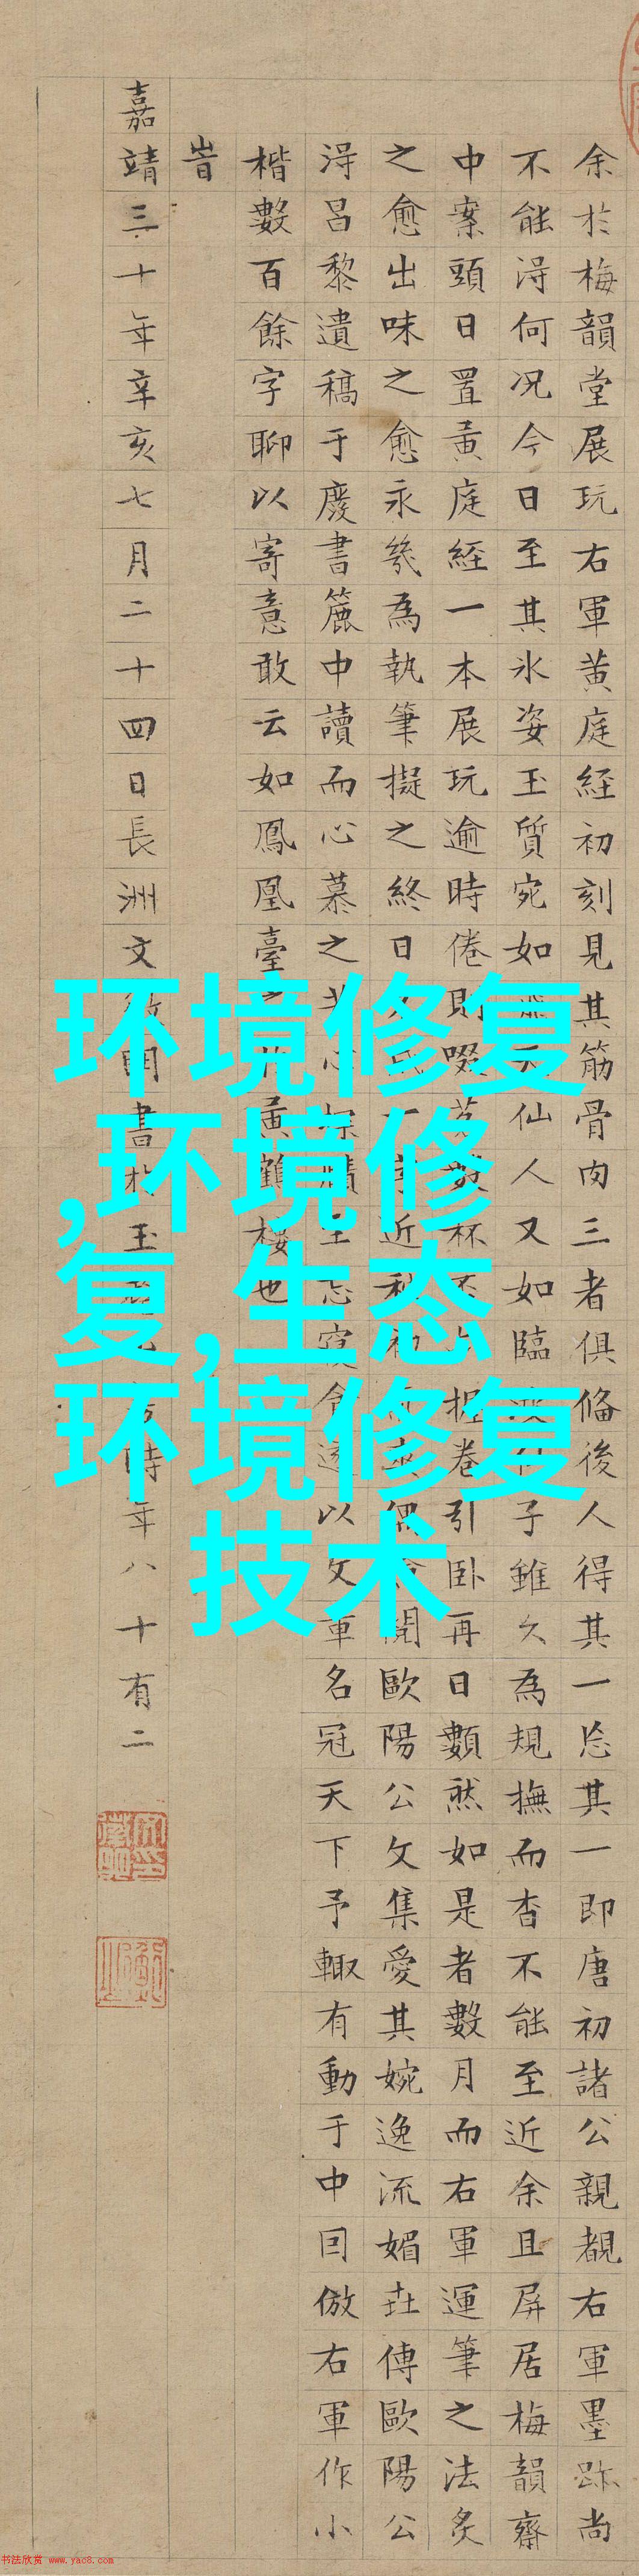 余於梅韻堂展玩右軍黃庭経初刻見其筋骨肉三者俱俻後人得其一忘其一即唐初諸公親覩右軍墨跡尚
不能淂何况今日至其氷姿玉質宛如仙人又如臨子雖久為規撫而杳不能至近余且屏居梅韻齋
中案頭日置黃庭経一本展玩逾時倦則啜杯握卷引卧再日數然如是者數月而右軍運筆之法炙
之愈出味之愈永幾為執筆擬之終日近初開歐陽公文集愛其婉逸流媚𡉏傳歐陽公
淂呂黎遺稿于廢書簏中讀而心慕之心至忘寢食遂以文章名冠天下予輙有動于中囙倣右軍作小
楷數百餘字聊以寄意敢云如鳳凰臺黃鶴樓也
峕
嘉靖三十年辛亥七月二十四日長洲文書於玉時年八十有二
环境修复
,环境修
复,生态
环境修复
技术
书法欣赏 www.yac8.com